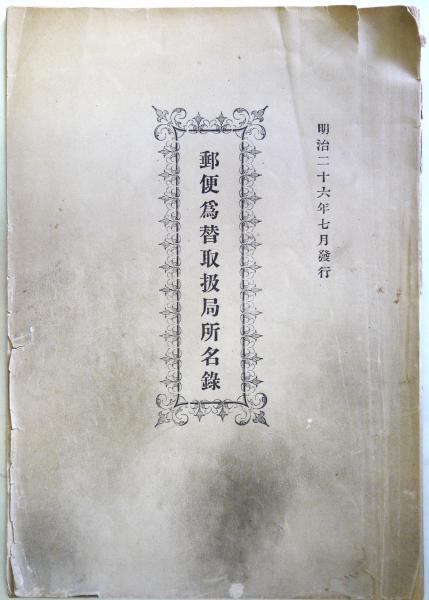 明治二十六年七月發行
郵便爲替取扱局所名錄